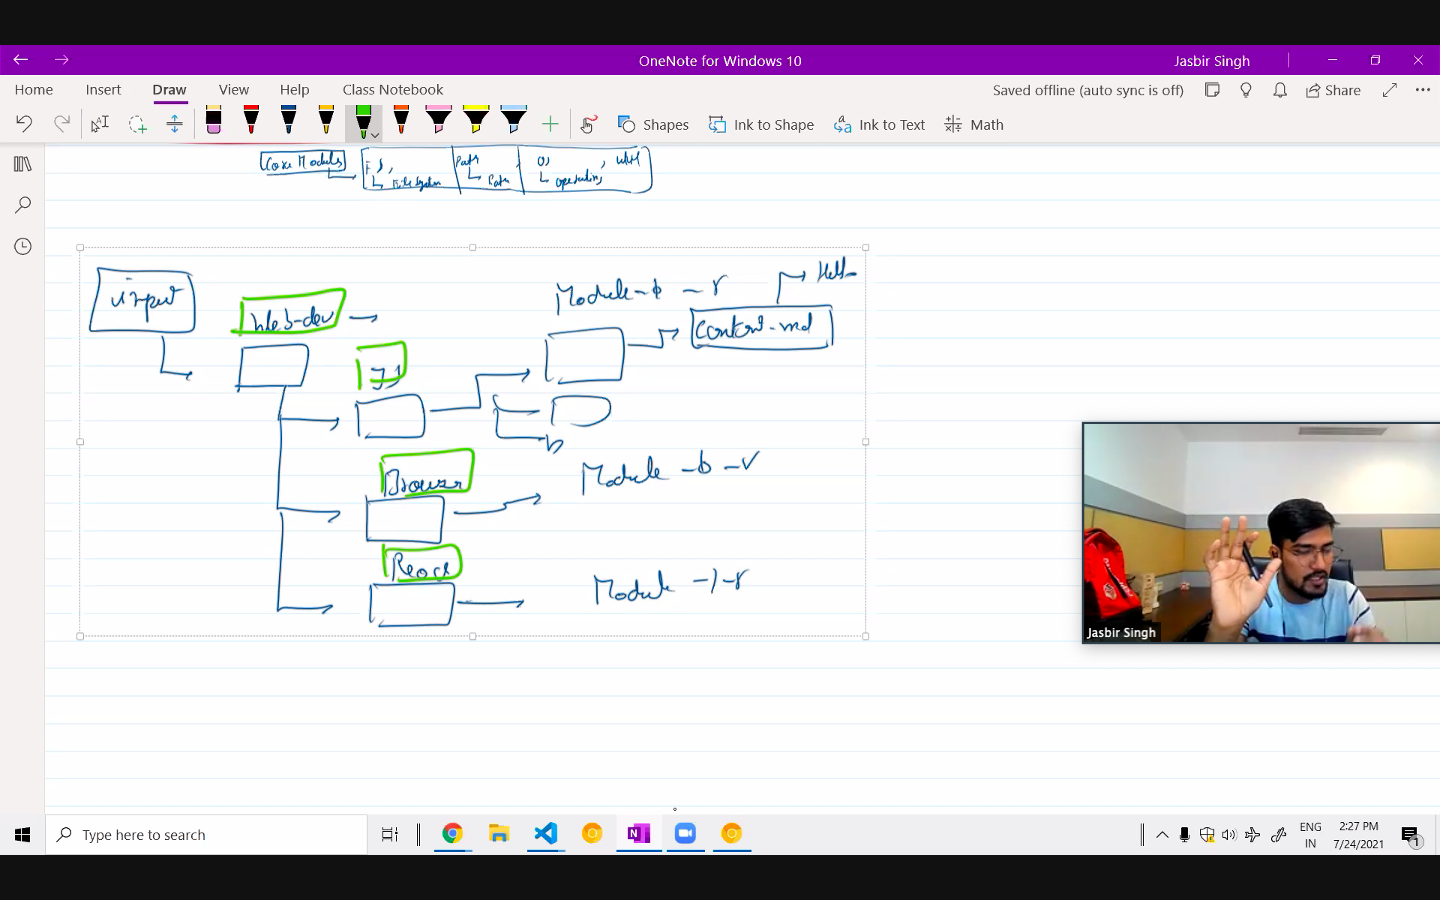 OneNote for Windows 10
Jasbir Singh
Home Insert Draw View Help Class Notebook
Saved offline (auto sync is off) Share
Shapes Ink to Shape Ink to Text Math
Core Modules
Path
Path
input
Web-dev
Module
content.md
JS
Browser
Module
React
Module
Jasbir Singh
Type here to search
ENG
IN
2:27 PM
7/24/2021
1